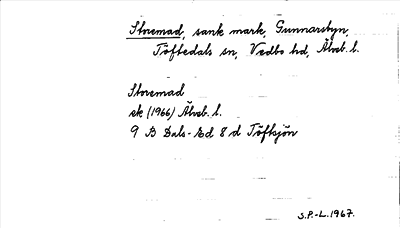 Storemad, sank mark, Gunnarsbyn,
Töftedals sn, Vedbo hd, Älvsb. l.
Storemad
ek (1966) Älvsb. l.
9 B Dals-Ed 8 d Töftsjön
S.P.-L. 1967.